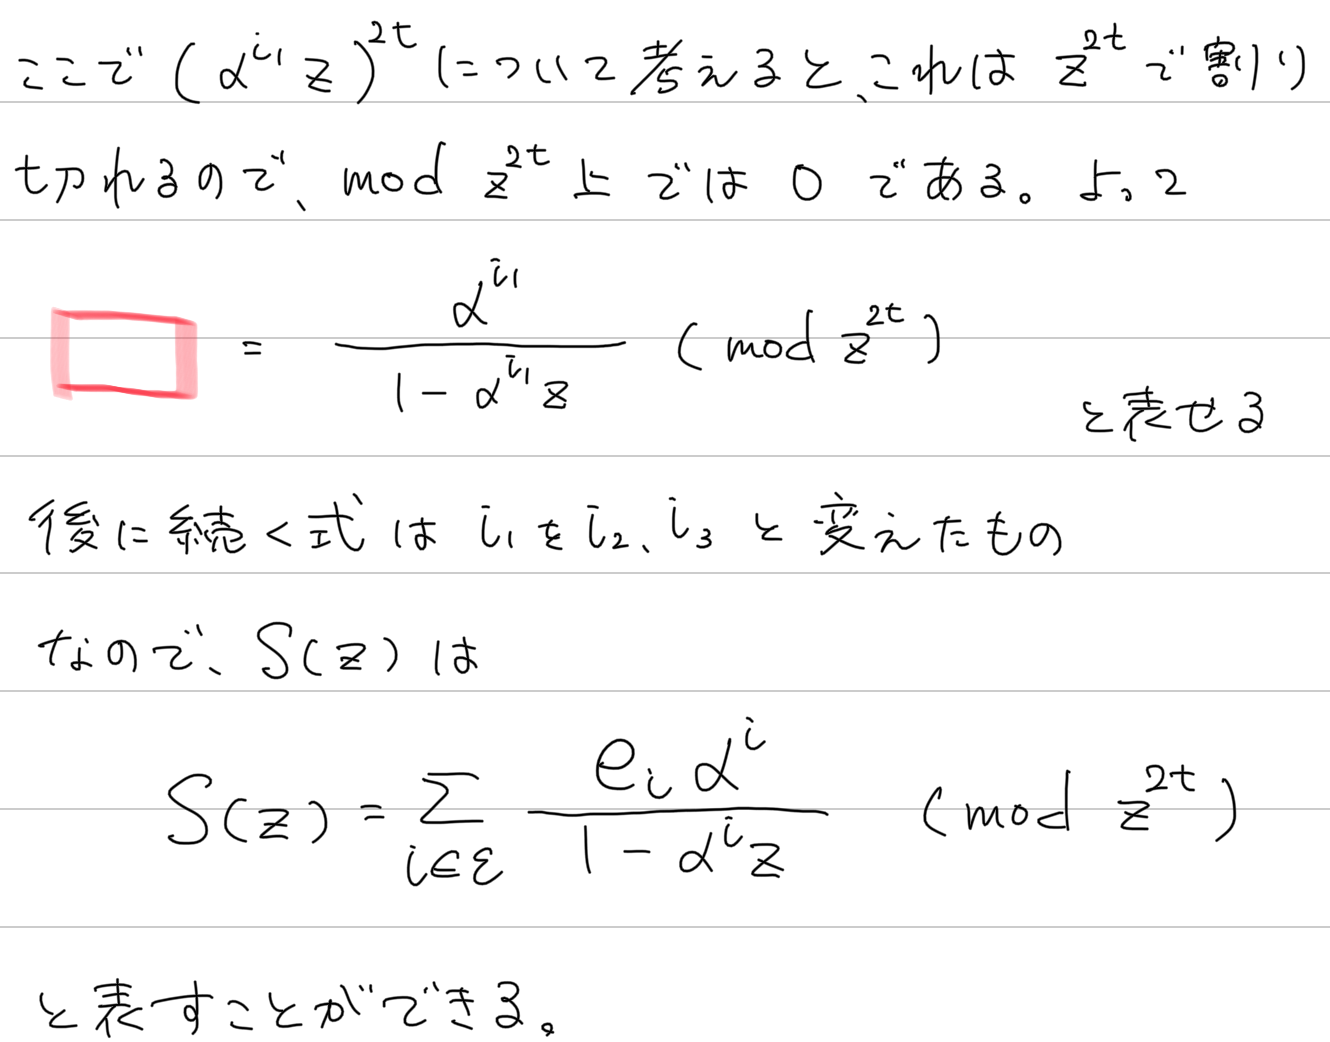 ここで (α^{i_1} z)^{2t} について考えると、これは z^{2t} で割り
切れるので、mod z^{2t} 上では 0 である。よって
□ = \frac{α^{i_1}}{1 - α^{i_1} z} (mod z^{2t})
と表せる
後に続く式は i_1 を i_2、i_3 と変えたもの
なので、S(z) は
S(z) = \sum_{i∈ε} \frac{e_i α^i}{1 - α^i z} (mod z^{2t})
と表すことができる。